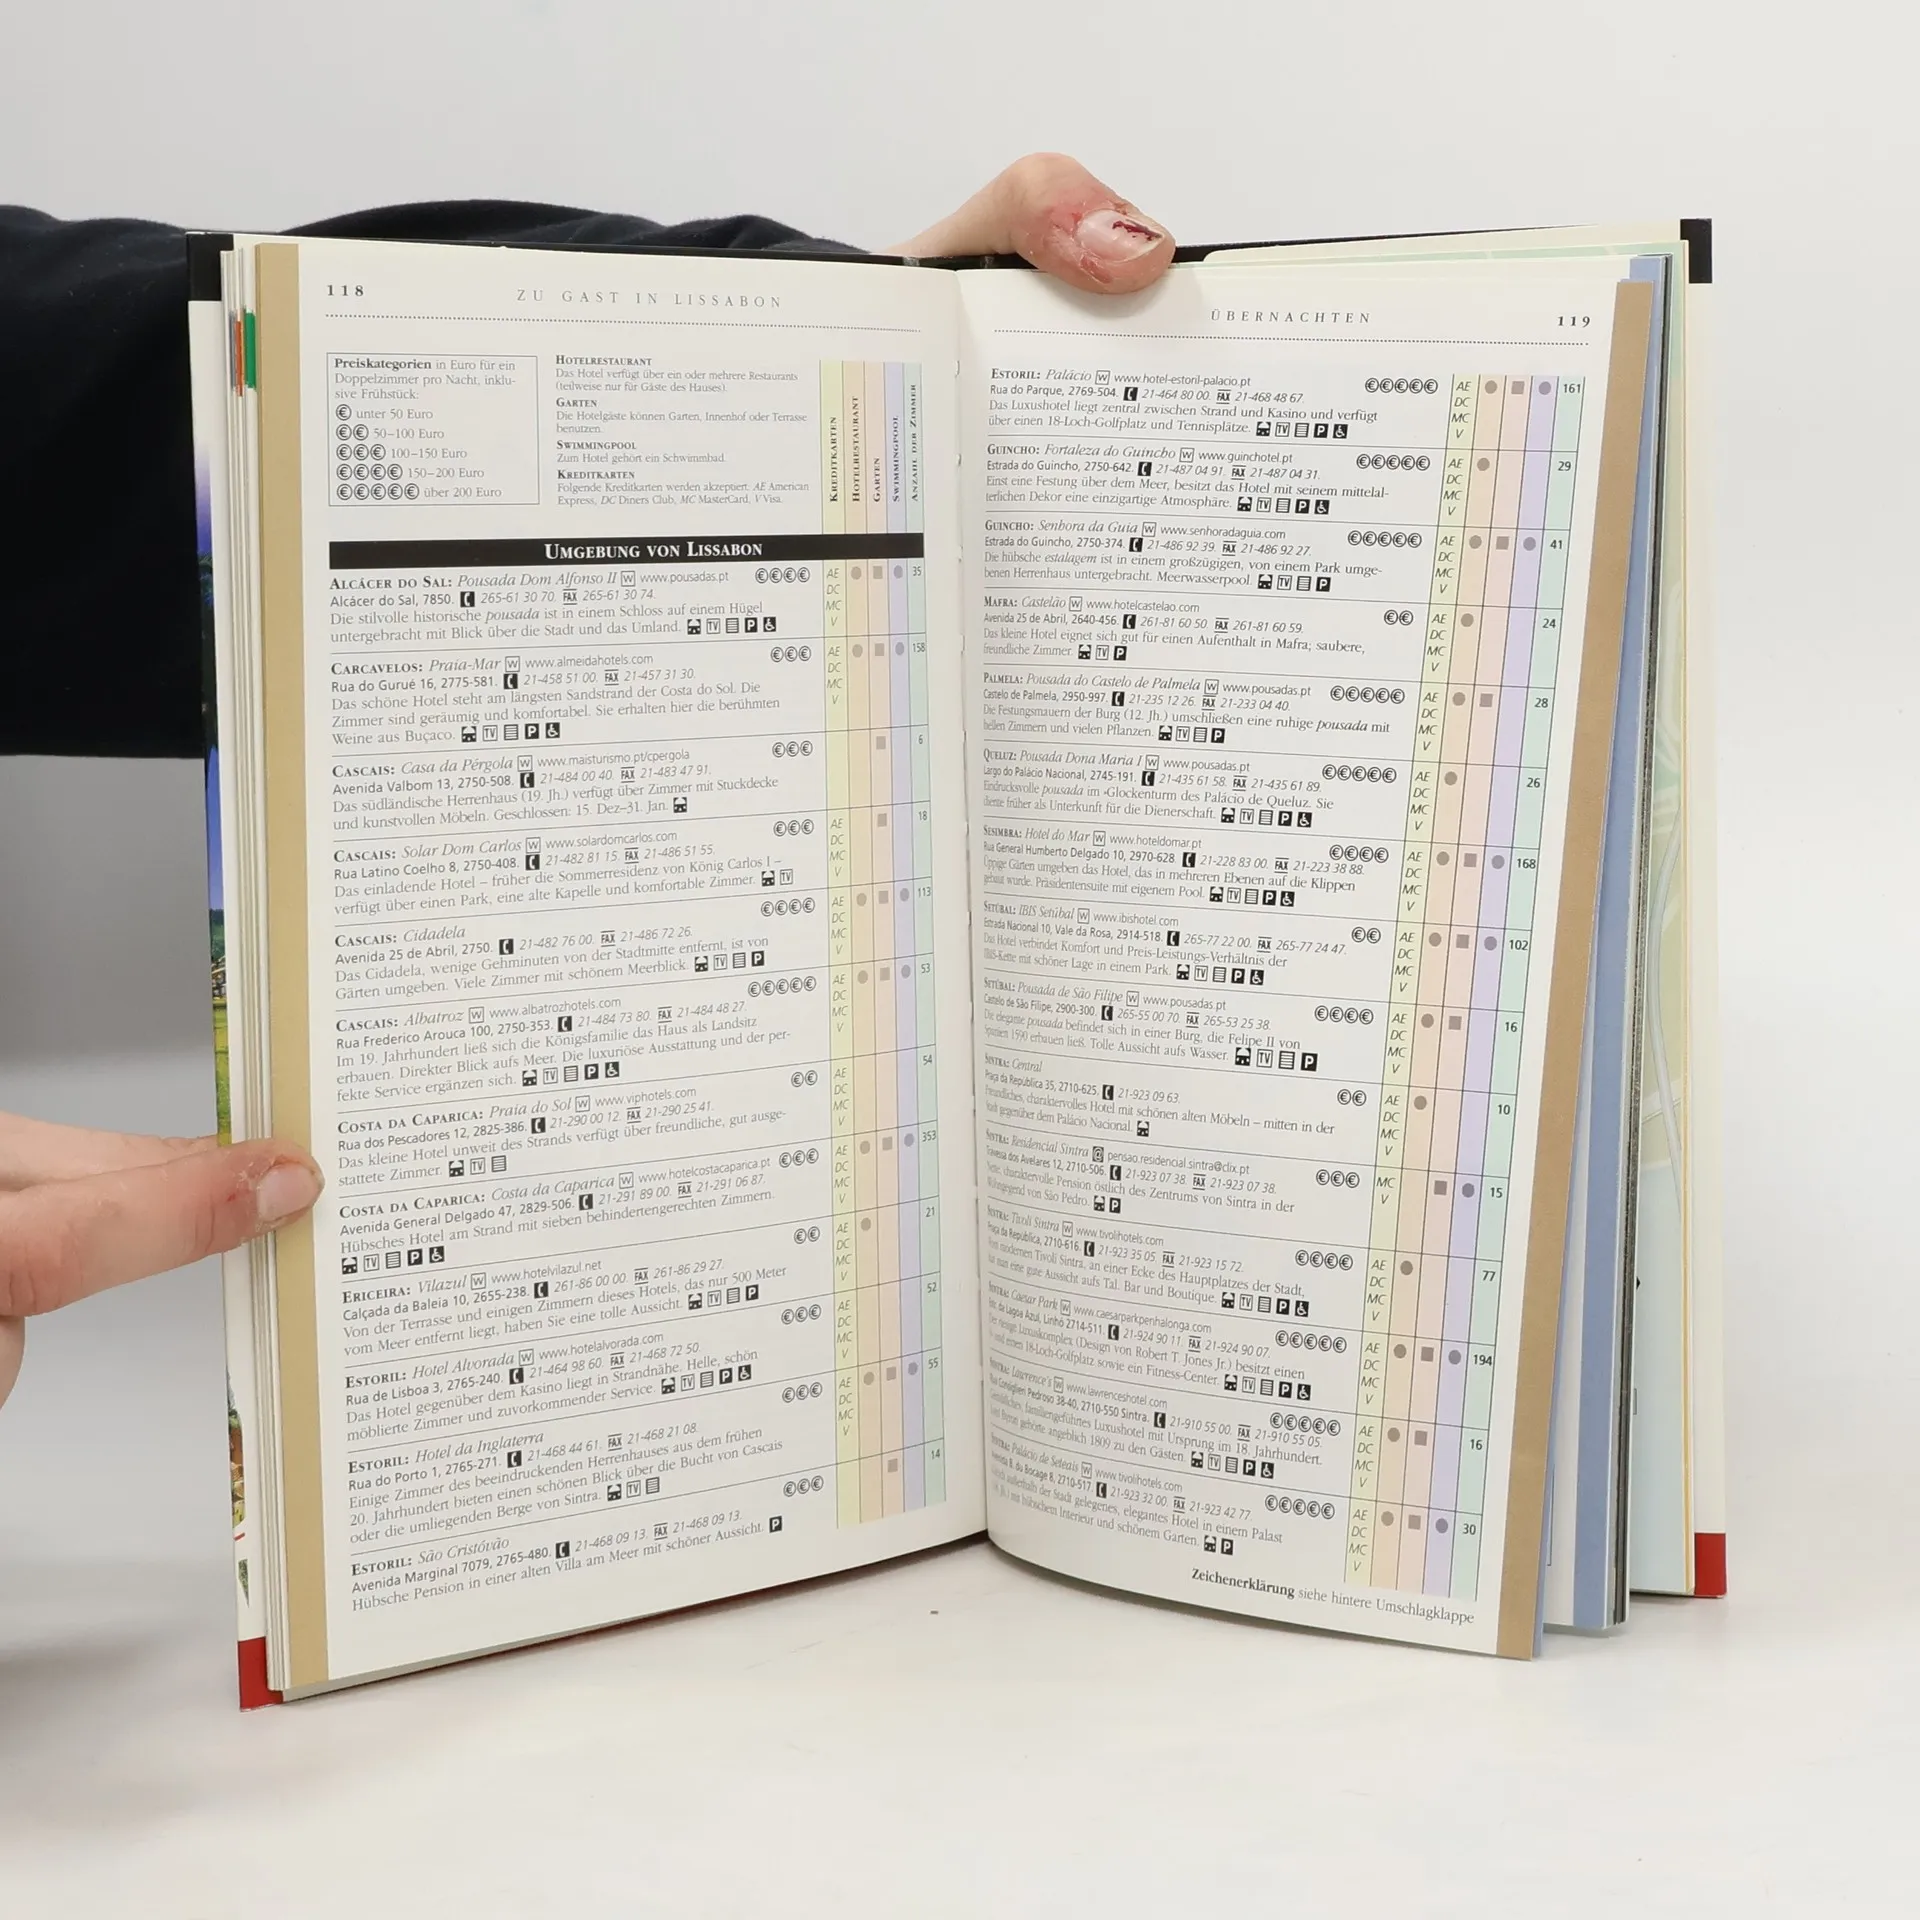 118
ZU GAST IN LISSABON
Preiskategorien in Euro für ein
Doppelzimmer pro Nacht, inklu-
sive Frühstück:
€ unter 50 Euro
€€ 50–100 Euro
€€€ 100–150 Euro
€€€€ 150–200 Euro
€€€€€ über 200 Euro
HOTELRESTAURANT
Das Hotel verfügt über ein oder mehrere Restaurants
(teilweise nur für Gäste des Hauses).
GARTEN
Die Hotelgäste können Garten, Innenhof oder Terrasse
benutzen.
SWIMMINGPOOL
Zum Hotel gehört ein Schwimmbad.
KREDITKARTEN
Folgende Kreditkarten werden akzeptiert: AE American
Express, DC Diners Club, MC MasterCard, V Visa.
KREDITKARTEN
HOTELRESTAURANT
GARTEN
SWIMMINGPOOL
ANZAHL DER ZIMMER
UMGEBUNG VON LISSABON
ALCÁCER DO SAL: Pousada Dom Alfonso II W www.pousadas.pt €€€€ AE 35
Alcácer do Sal, 7850. 265-61 30 70. FAX 265-61 30 74. DC
Die stilvolle historische pousada ist in einem Schloss auf einem Hügel MC
untergebracht mit Blick über die Stadt und das Umland. TV P V
CARCAVELOS: Praia-Mar W www.almeidahotels.com €€€ AE 158
Rua do Gurué 16, 2775-581. 21-458 51 00. FAX 21-457 31 30. DC
Das schöne Hotel steht am längsten Sandstrand der Costa do Sol. Die MC
Zimmer sind geräumig und komfortabel. Sie erhalten hier die berühmten V
Weine aus Buçaco. TV P
CASCAIS: Casa da Pérgola W www.maisturismo.pt/cpergola €€€ 6
Avenida Valbom 13, 2750-508. 21-484 00 40. FAX 21-483 47 91.
Das südländische Herrenhaus (19. Jh.) verfügt über Zimmer mit Stuckdecke
und kunstvollen Möbeln. Geschlossen: 15. Dez–31. Jan.
CASCAIS: Solar Dom Carlos W www.solardomcarlos.com €€€ AE 18
Rua Latino Coelho 8, 2750-408. 21-482 81 15. FAX 21-486 51 55. DC
Das einladende Hotel – früher die Sommerresidenz von König Carlos I – MC
verfügt über einen Park, eine alte Kapelle und komfortable Zimmer. TV V
CASCAIS: Cidadela €€€€ AE 113
Avenida 25 de Abril, 2750. 21-482 76 00. FAX 21-486 72 26. DC
Das Cidadela, wenige Gehminuten von der Stadtmitte entfernt, ist von MC
Gärten umgeben. Viele Zimmer mit schönem Meerblick. TV P V
CASCAIS: Albatroz W www.albatrozhotels.com €€€€€ AE 53
Rua Frederico Arouca 100, 2750-353. 21-484 73 80. FAX 21-484 48 27. DC
Im 19. Jahrhundert ließ sich die Königsfamilie das Haus als Landsitz MC
erbauen. Direkter Blick aufs Meer. Die luxuriöse Ausstattung und der per- V
fekte Service ergänzen sich. TV P
COSTA DA CAPARICA: Praia do Sol W www.viphotels.com €€ AE 54
Rua dos Pescadores 12, 2825-386. 21-290 00 12. FAX 21-290 25 41. DC
Das kleine Hotel unweit des Strands verfügt über freundliche, gut ausge- MC
stattete Zimmer. TV V
COSTA DA CAPARICA: Costa da Caparica W www.hotelcostacaparica.pt €€€ AE 353
Avenida General Delgado 47, 2829-506. 21-291 89 00. FAX 21-291 06 87. DC
Hübsches Hotel am Strand mit sieben behindertengerechten Zimmern. MC
TV P V
ERICEIRA: Vilazul W www.hotelvilazul.net €€ AE 21
Calçada da Baleia 10, 2655-238. 261-86 00 00. FAX 261-86 29 27. DC
Von der Terrasse und einigen Zimmern dieses Hotels, das nur 500 Meter MC
vom Meer entfernt liegt, haben Sie eine tolle Aussicht. TV P V
ESTORIL: Hotel Alvorada W www.hotelalvorada.com €€€ AE 52
Rua de Lisboa 3, 2765-240. 21-464 98 60. FAX 21-468 72 50. DC
Das Hotel gegenüber dem Kasino liegt in Strandnähe. Helle, schön MC
möblierte Zimmer und zuvorkommender Service. TV P V
ESTORIL: Hotel da Inglaterra €€€ AE 55
Rua do Porto 1, 2765-271. 21-468 44 61. FAX 21-468 21 08. DC
Einige Zimmer des beeindruckenden Herrenhauses aus dem frühen MC
20. Jahrhundert bieten einen schönen Blick über die Bucht von Cascais V
oder die umliegenden Berge von Sintra. TV
ESTORIL: São Cristóvão €€€ 14
Avenida Marginal 7079, 2765-480. 21-468 09 13. FAX 21-468 09 13.
Hübsche Pension in einer alten Villa am Meer mit schöner Aussicht. P
ÜBERNACHTEN
119
ESTORIL: Palácio W www.hotel-estoril-palacio.pt €€€€€ AE 161
Rua do Parque, 2769-504. 21-464 80 00. FAX 21-468 48 67. DC
Das Luxushotel liegt zentral zwischen Strand und Kasino und verfügt MC
über einen 18-Loch-Golfplatz und Tennisplätze. TV P V
GUINCHO: Fortaleza do Guincho W www.guinchotel.pt €€€€€ AE 29
Estrada do Guincho, 2750-642. 21-487 04 91. FAX 21-487 04 31. DC
Einst eine Festung über dem Meer, besitzt das Hotel mit seinem mittelal- MC
terlichen Dekor eine einzigartige Atmosphäre. TV P V
GUINCHO: Senhora da Guia W www.senhoradaguia.com €€€€€ AE 41
Estrada do Guincho, 2750-374. 21-486 92 39. FAX 21-486 92 27. DC
Die hübsche estalagem ist in einem großzügigen, von einem Park umge- MC
benen Herrenhaus untergebracht. Meerwasserpool. TV P V
MAFRA: Castelão W www.hotelcastelao.com €€ AE 24
Avenida 25 de Abril, 2640-456. 261-81 60 50. FAX 261-81 60 59. DC
Das kleine Hotel eignet sich gut für einen Aufenthalt in Mafra; saubere, MC
freundliche Zimmer. TV P V
PALMELA: Pousada do Castelo de Palmela W www.pousadas.pt €€€€€ AE 28
Castelo de Palmela, 2950-997. 21-235 12 26. FAX 21-233 04 40. DC
Die Festungsmauern der Burg (12. Jh.) umschließen eine ruhige pousada mit MC
hellen Zimmern und vielen Pflanzen. TV P V
QUELUZ: Pousada Dona Maria I W www.pousadas.pt €€€€€ AE 26
Largo do Palácio Nacional, 2745-191. 21-435 61 58. FAX 21-435 61 89. DC
Eindrucksvolle pousada im Glockenturm des Palácio de Queluz. Sie MC
diente früher als Unterkunft für die Dienerschaft. TV P V
SESIMBRA: Hotel do Mar W www.hoteldomar.pt €€€€ AE 168
Rua General Humberto Delgado 10, 2970-628. 21-228 83 00. FAX 21-223 38 88. DC
Üppige Gärten umgeben das Hotel, das in mehreren Ebenen auf die Klippen MC
gebaut wurde. Präsidentensuite mit eigenem Pool. TV P V
SETÚBAL: IBIS Setúbal W www.ibishotel.com €€ AE 102
Estrada Nacional 10, Vale da Rosa, 2914-518. 265-77 22 00. FAX 265-77 24 47. DC
Das Hotel verbindet Komfort und Preis-Leistungs-Verhältnis der MC
IBIS-Kette mit schöner Lage in einem Park. TV P V
SETÚBAL: Pousada de São Filipe W www.pousadas.pt €€€€ AE 16
Castelo de São Filipe, 2900-300. 265-55 00 70. FAX 265-53 25 38. DC
Die elegante pousada befindet sich in einer Burg, die Felipe II von MC
Spanien 1590 erbauen ließ. Tolle Aussicht aufs Wasser. TV P V
SINTRA: Central €€ AE 10
Praça da República 35, 2710-625. 21-923 09 63. DC
Freundliches, charaktervolles Hotel mit schönen alten Möbeln – mitten in der MC
Stadt gegenüber dem Palácio Nacional. V
SINTRA: Residencial Sintra @ pensao.residencial.sintra@clix.pt €€€ MC 15
Travessa dos Avelares 12, 2710-506. 21-923 07 38. FAX 21-923 07 38. V
Nette, charaktervolle Pension östlich des Zentrums von Sintra in der
Wohngegend von São Pedro. P
SINTRA: Tivoli Sintra W www.tivolihotels.com €€€€ AE 77
Praça da República, 2710-616. 21-923 35 05. FAX 21-923 15 72. DC
modernen Tivoli Sintra, an einer Ecke des Hauptplatzes der Stadt, MC
hat man eine gute Aussicht aufs Tal. Bar und Boutique. TV P V
SINTRA: Caesar Park W www.caesarparkpenhalonga.com €€€€€ AE 194
Estr. da Lagoa Azul, Linhó 2714-511. 21-924 90 11. FAX 21-924 90 07. DC
Der riesige Luxuskomplex (Design von Robert T. Jones Jr.) besitzt einen MC
und einen 18-Loch-Golfplatz sowie ein Fitness-Center. TV P V
SINTRA: Lawrence's W www.lawrenceshotel.com €€€€€ AE 16
Rua Consiglieri Pedroso 38-40, 2710-550 Sintra. 21-910 55 00. FAX 21-910 55 05. DC
Gemütliches, familiengeführtes Luxushotel mit Ursprung im 18. Jahrhundert. MC
Lord Byron gehörte angeblich 1809 zu den Gästen. TV P V
SINTRA: Palácio de Seteais W www.tivolihotels.com €€€€€ AE 30
Avenida B. du Bocage 8, 2710-517. 21-923 32 00. FAX 21-923 42 77. DC
außerhalb der Stadt gelegenes, elegantes Hotel in einem Palast MC
mit hübschem Interieur und schönem Garten. P V
Zeichenerklärung siehe hintere Umschlagklappe